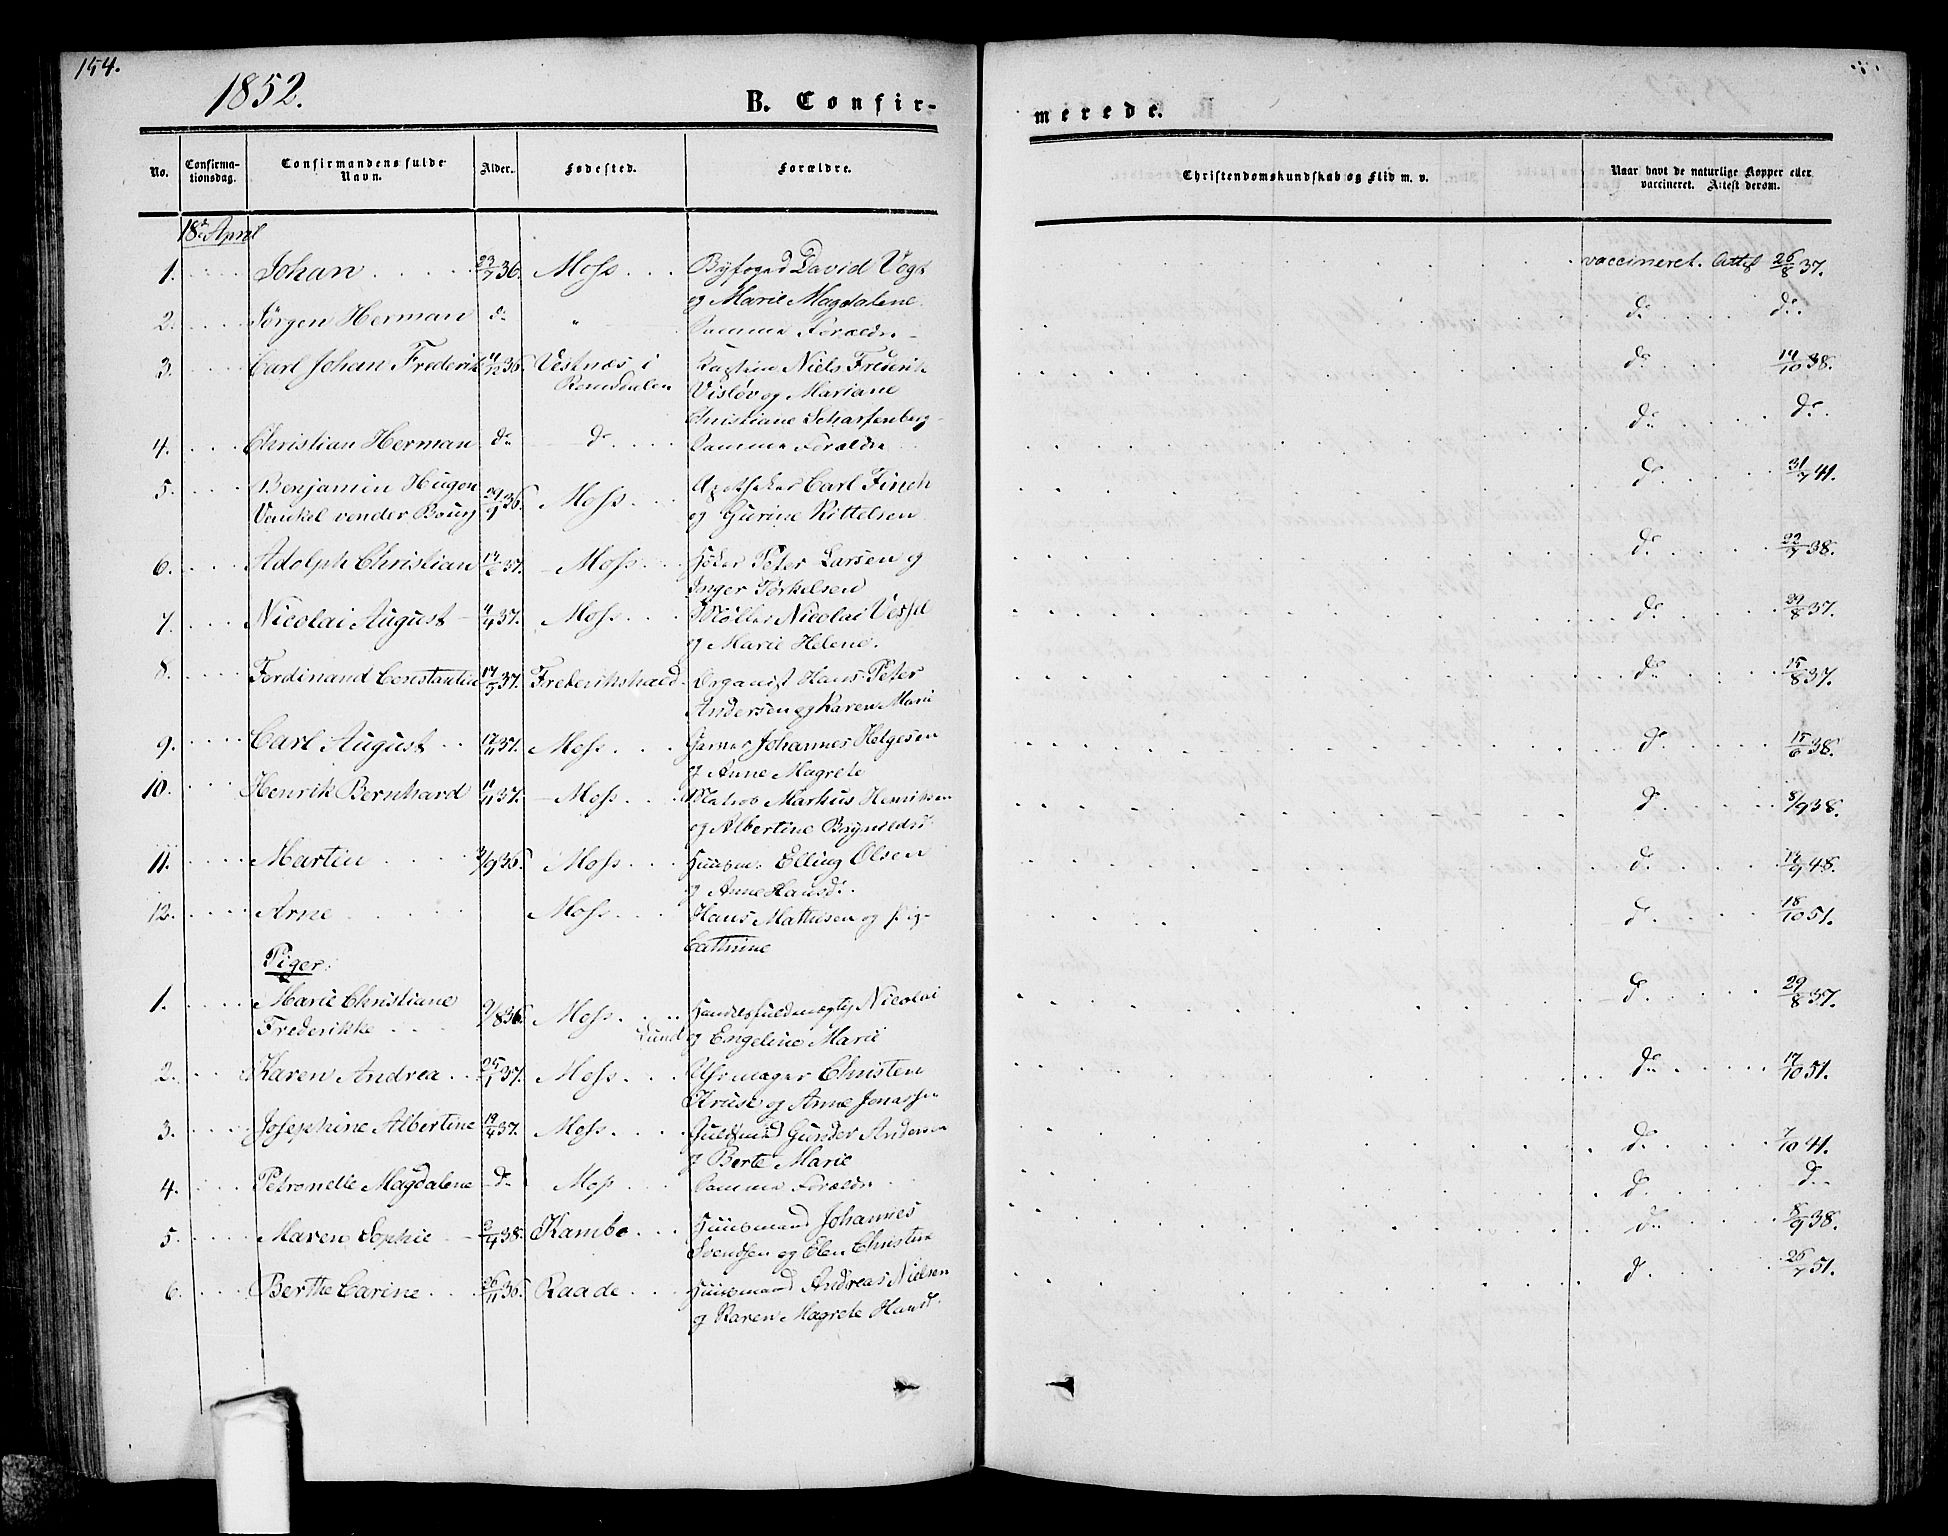 154.
1852.
B. Confir-
merede.
No.
Confirma-
tionsdag.
Confirmandens fulde
Navn.
Alder.
Fødested.
Forældre.
Christendomskundskab og Flid m. v.
Naar havt de naturlige Kopper eller
vaccineret. Attest derom.
18de April
1. Johan 23/7 36. Moss Byfoged David Vogt vaccineret. Attest 26/8 37.
og Marie Magdalene
2. Jørgen Herman do " Samme Forældre do do.
3. Carl Johan Frederik 36. Vestnæs i Kaptein Niels Frederik do 14/10 38.
Romsdalen Visløv og Mariane
Christiane Scharfenberg
4. Christian Herman do do Samme Forældre do do.
5. Benjamin Hugon 36. Moss Apotheker Carl Finch do 31/7 41.
Venkel vonder Bourg og Gurine Kittelsen
6. Adolph Christian 37. Moss Peter Larsen og do 22/7 38.
Inger Torkelsen
7. Nicolai August 37. Moss Møller Nicolai Vessel do 29/8 37.
og Marie Helene.
8. Ferdinand Constantin 37. Frederikshald Organist Hans Peter do 15/8 37.
Andersen og Karen Marie
9. Carl August 37. Moss Garver Johannes Helgesen do 15/6 38.
og Anne Magrete
10. Henrik Bernhard 37. Moss Matros Markus Henriksen do 8/9 38.
og Albertine Brynildsd.
11. Martin 36. Moss Huusm. Elling Olsen do 48.
og Anne Hansd.
12. Arne Moss Hans Mathesen og Pig- do 18/10 51.
Cathrine
Piger.
1. Marie Christiane 9/8 36. Moss Handelsfuldmægtig Nicolai do 29/8 37.
Frederikke Lund og Engeline Marie
2. Karen Andrea 25/1 37. Moss Uhrmager Christen do 17/10 51.
Kruse og Anne Jonassen
3. Josephine Albertine 19/4 37. Moss Guldsmed Gunder Andersen do 7/10 41.
og Berte Marie
4. Petronelle Magdalene do Moss Samme Forældre do do
5. Maren Sophie 38. Kambo Huusmand Johannes do 8/9 38.
Svendsen og Elen Christine
6. Berthe Carine 26/11 36. Raade Huusmand Andreas Nielsen do 26/7 51.
og Karen Magrete Hansd.